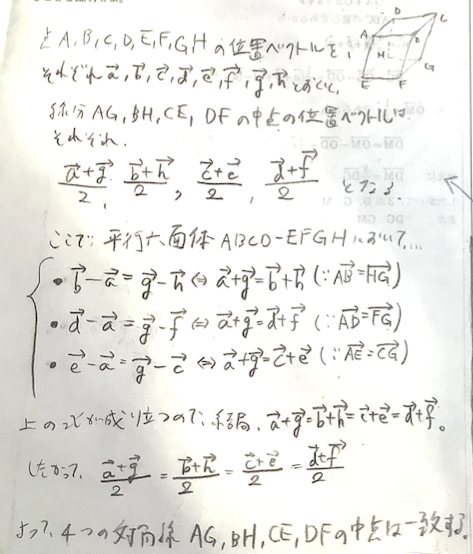 点A,B,C,D,E,F,G,Hの位置ベクトルを、
それぞれ a⃗, b⃗, c⃗, d⃗, e⃗, f⃗, g⃗, h⃗ とおくと、
線分 AG, BH, CE, DF の中点の位置ベクトルは
それぞれ、
(a⃗+g⃗)/2, (b⃗+h⃗)/2, (c⃗+e⃗)/2, (d⃗+f⃗)/2 となる
ここで、平行六面体 ABCD-EFGH において...
・b⃗-a⃗=g⃗-h⃗ ⇔ a⃗+g⃗=b⃗+h⃗ (∵AB⃗=HG⃗)
・d⃗-a⃗=g⃗-f⃗ ⇔ a⃗+g⃗=d⃗+f⃗ (∵AD⃗=FG⃗)
・e⃗-a⃗=g⃗-c⃗ ⇔ a⃗+g⃗=c⃗+e⃗ (∵AE⃗=CG⃗)
上の式が成り立つので、結局、a⃗+g⃗=b⃗+h⃗=c⃗+e⃗=d⃗+f⃗。
したがって、(a⃗+g⃗)/2=(b⃗+h⃗)/2=(c⃗+e⃗)/2=(d⃗+f⃗)/2
よって、4つの対角線 AG, BH, CE, DFの中点は一致する
D
C
A
B
H
G
E
F